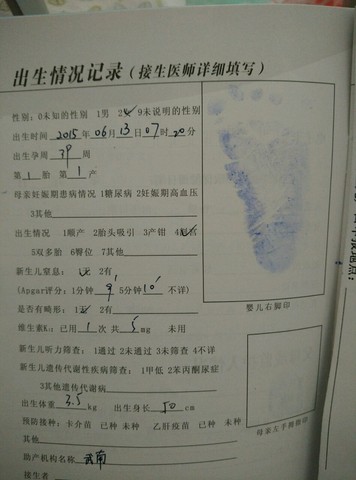 出生情况记录（接生医师详细填写）
性别：0未知的性别 1男 2女 9未说明的性别
出生时间 2015年 06月 13日 07时 20分
出生孕周 39 周
第 1 胎 第 1 产
母亲妊娠期患病情况 1糖尿病 2妊娠期高血压
3其他
出生情况 1顺产 2胎头吸引 3产钳 4剖宫
5双多胎 6臀位 7其他
新生儿窒息： 1无 2有
(Apgar评分：1分钟 9 5分钟 10 不详)
是否有畸形： 1无 2有
维生素K₁：已用 1 次 共 5 mg 未用
新生儿听力筛查：1通过 2未通过 3未筛查 4不详
新生儿遗传代谢性疾病筛查：1甲低 2苯丙酮尿症
3其他遗传代谢病
出生体重 3.5 kg 出生身长 50 cm
预防接种：卡介苗 已种 未种 乙肝疫苗 已种 未种
其他
助产机构名称 武南
接生者
婴儿右脚印
母亲左手拇指印